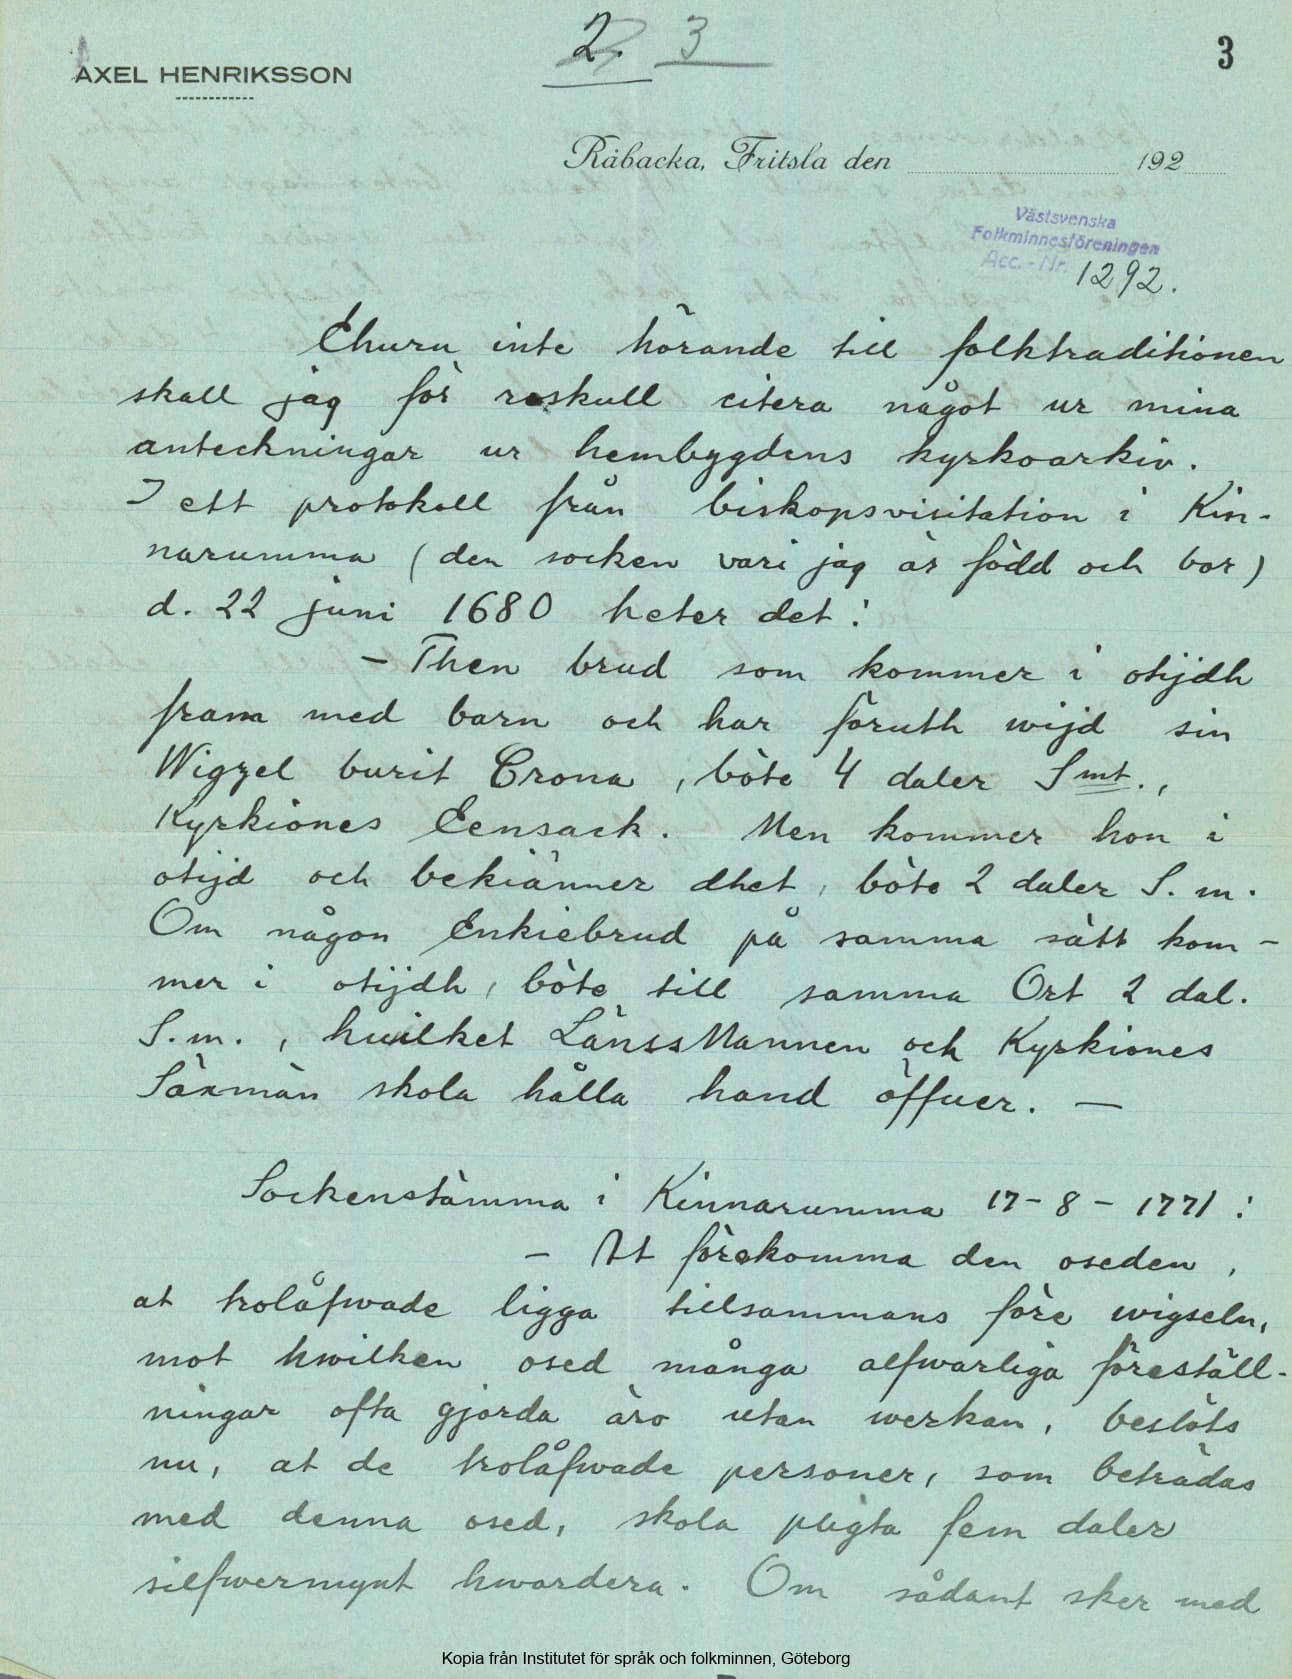 2. 3
3
AXEL HENRIKSSON
Råbacka, Fritsla den 192
Västsvenska
Folkminnesföreningen
Acc.-Nr. 1292.
Ehuru inte hörande till folktraditionen
skall jag för roskull citera något ur mina
anteckningar ur hembygdens kyrkoarkiv.
I ett protokoll från biskopsvisitation i Kin-
narumma (den socken vari jag är född och bor)
d. 22 juni 1680 heter det:
- Then brud som kommer i otijdh
fram med barn och har föruth wijd sin
Wigzel burit Crona, böte 4 daler Smt.,
Kyrkiones Eensack. Men kommer hon i
otijd och bekiänner dhet, böte 2 daler S. m.
Om någon Enkiebrud på samma sätt kom-
mer i otijdh, böte till samma Ort 2 dal.
S.m., hwilket LänssMannen och Kyrkiones
Säxmän skola hålla hand öffuer. —
Sockenstämma i Kinnarumma 17-8-1771:
- At förekomma den oseden,
at trolåfwade ligga tillsammans före wigseln,
mot hwilken osed många alfwarliga föreställ-
ningar ofta gjorda äro utan werkan, beslöts
nu, at de trolåfwade personer, som beträdas
med denna osed, skola pligta fem daler
silfwermynt hwardera. Om sådant sker med
Kopia från Institutet för språk och folkminnen, Göteborg